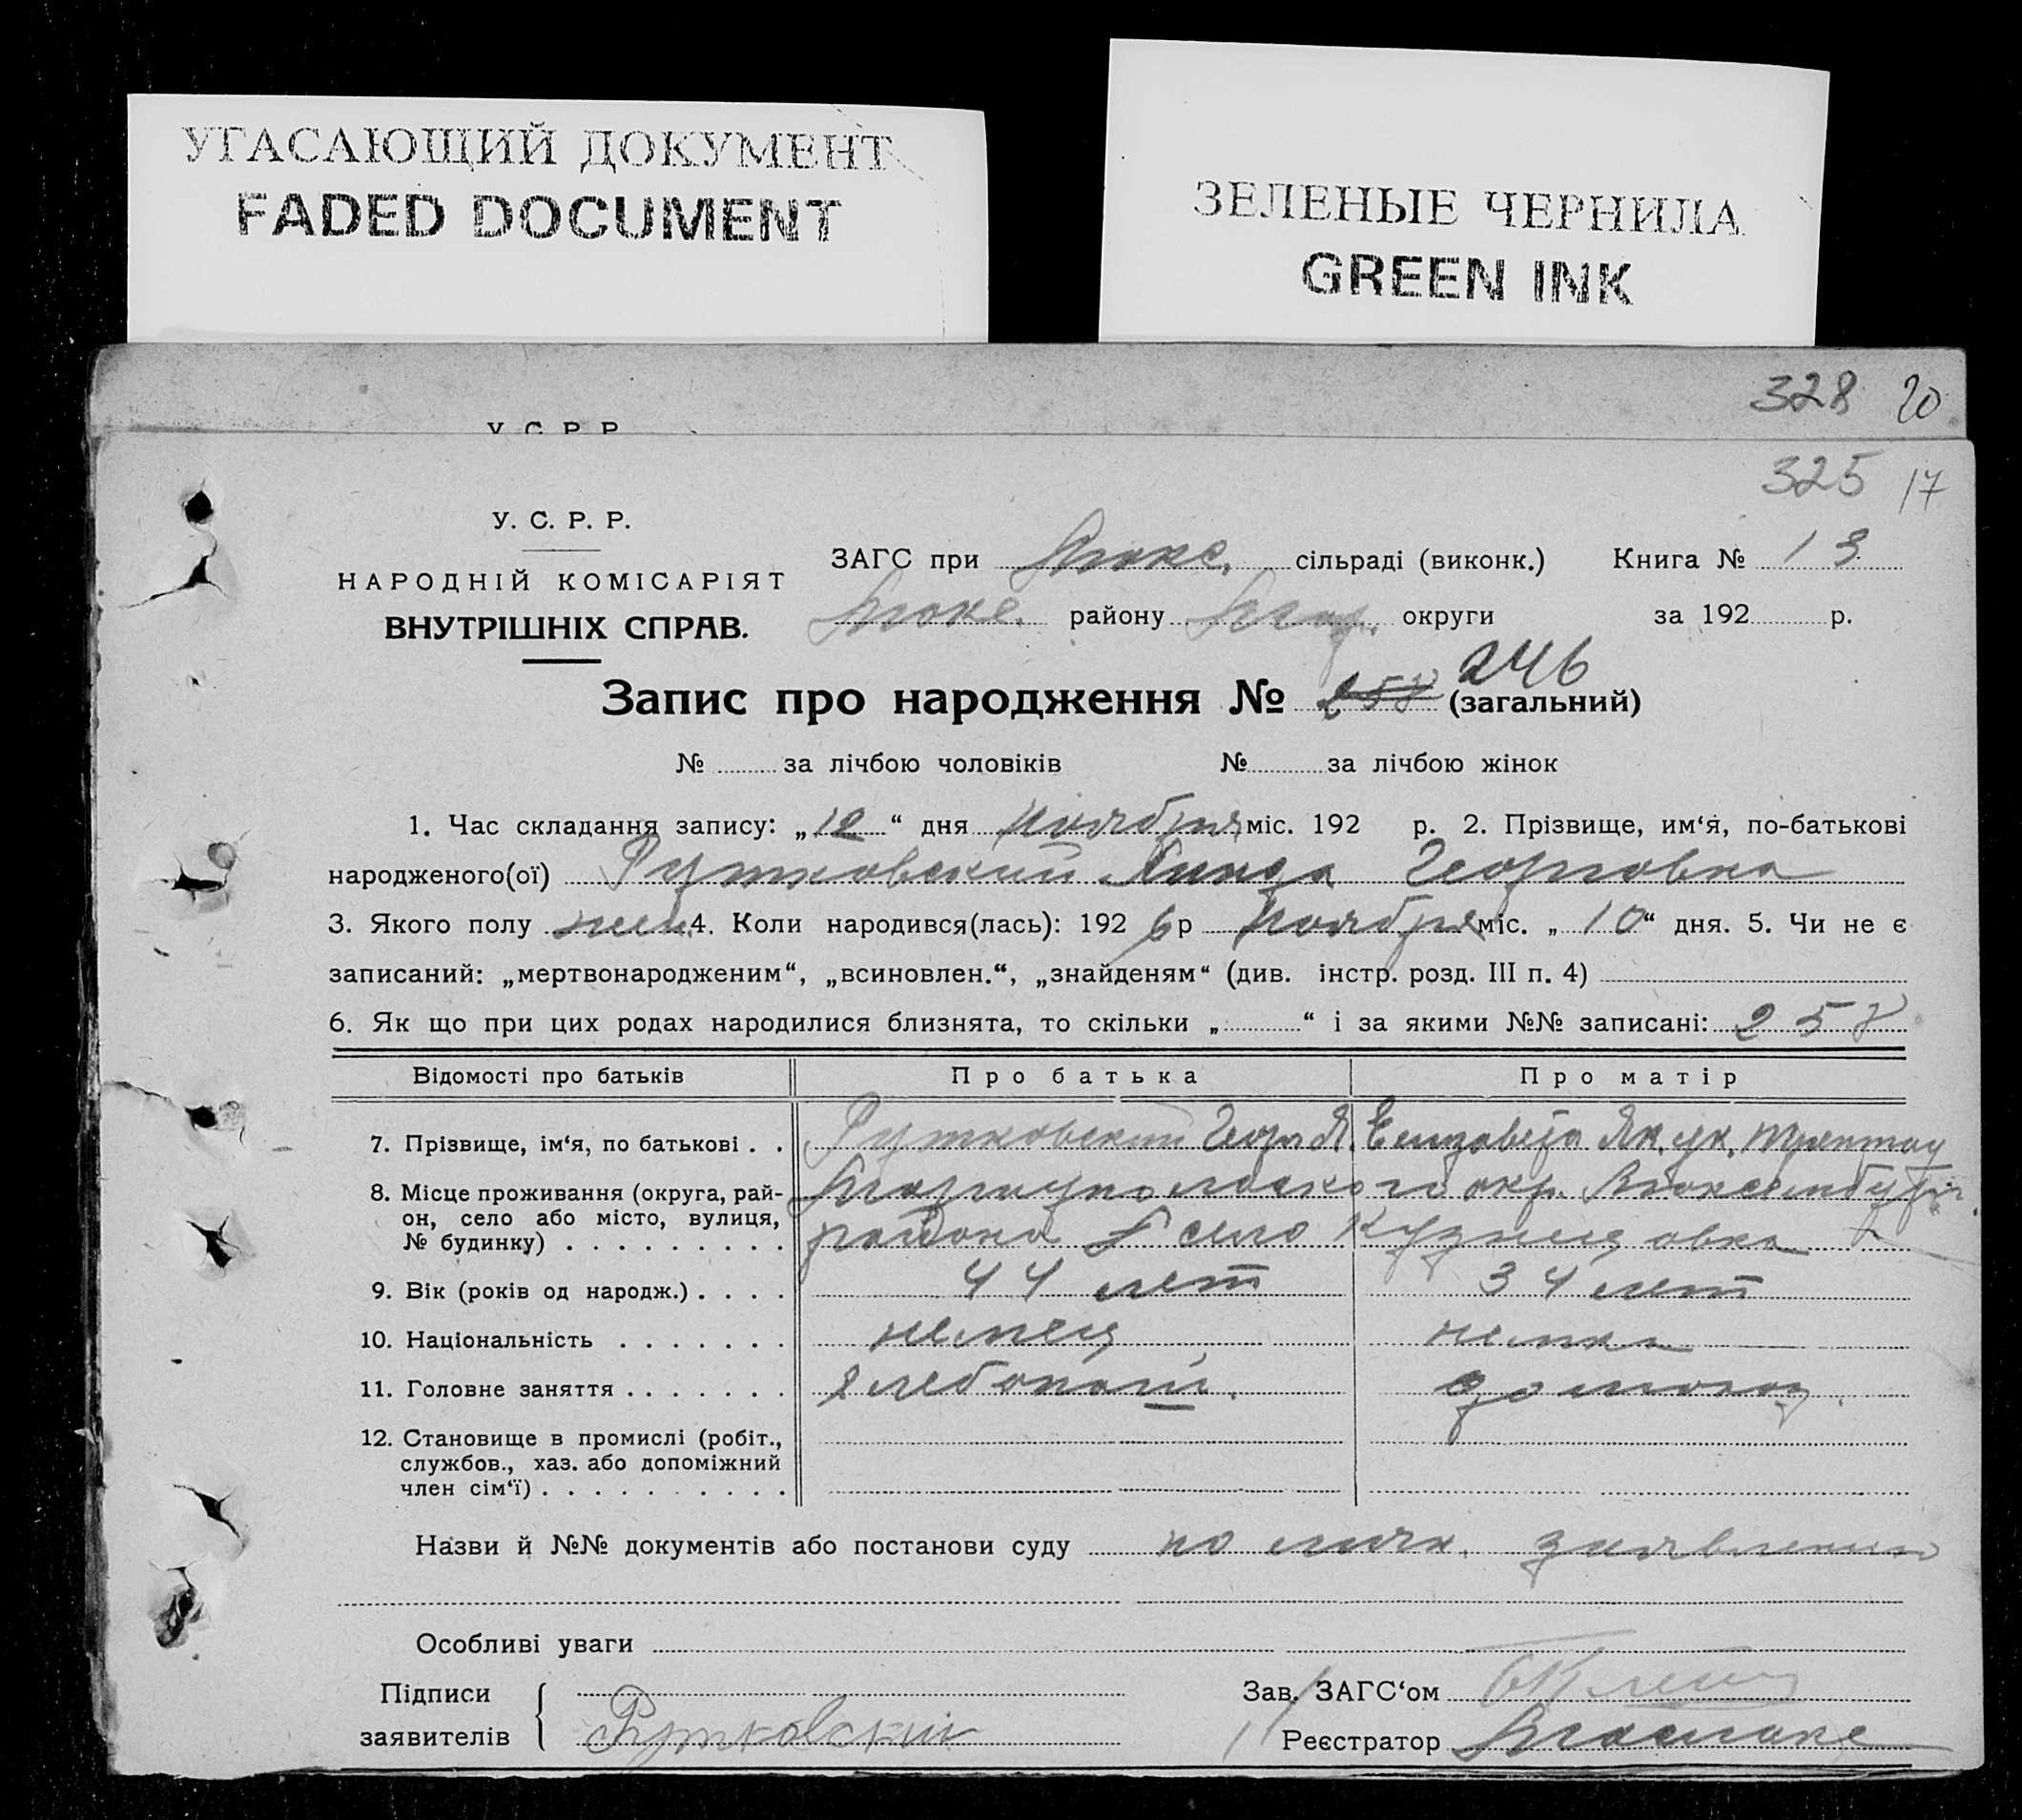 УГАСАЮЩИЙ ДОКУМЕНТ
FADED DOCUMENT
ЗЕЛЕНЫЕ ЧЕРНИЛА
GREEN INK
328 20
У. С. Р. Р.
325 17
У. С. Р. Р.
НАРОДНІЙ КОМІСАРІЯТ
ВНУТРІШНІХ СПРАВ.
ЗАГС при Люкс. сільраді (виконк.) Книга № 13
Люкс. району Мар. округи за 192 р.
Запис про народження № 257 246 (загальний)
№ за лічбою чоловіків № за лічбою жінок
1. Час складання запису: „12“ дня Ноября міс. 192 р. 2. Прізвище, им‘я, по-батькові
народженого(ої) Рутковский Линда Георговна
3. Якого полу жен. 4. Коли народився(лась): 192 6 р Ноября міс. „10“ дня. 5. Чи не є
записаний: „мертвонародженим“, „всиновлен.“, „знайденям“ (див. інстр. розд. III п. 4)
6. Як що при цих родах народилися близнята, то скільки „ “ і за якими №№ записані: 257
Відомості про батьків Про батька Про матір
7. Прізвище, ім‘я, по батькові . . Рутковский Георг Я. Елизавета Як. ур. Трептау
8. Місце проживання (округа, рай-
он, село або місто, вулиця,
№ будинку) . . . . . . . . . Мариупольского окр. Люксембург.
района село Кузнецовка
9. Вік (років од народж.) . . . . 44 лет 34 лет
10. Національність . . . . . . . немец немка
11. Головне заняття . . . . . . . хлебопаш. домохоз.
12. Становище в промислі (робіт.,
службов., хаз. або допоміжний
член сім‘ї) . . . . . . . . . .
Назви й №№ документів або постанови суду по личн. заявлению
Особливі уваги
Підписи
заявителів Рутковский
Зав. ЗАГС‘ом
Реєстратор